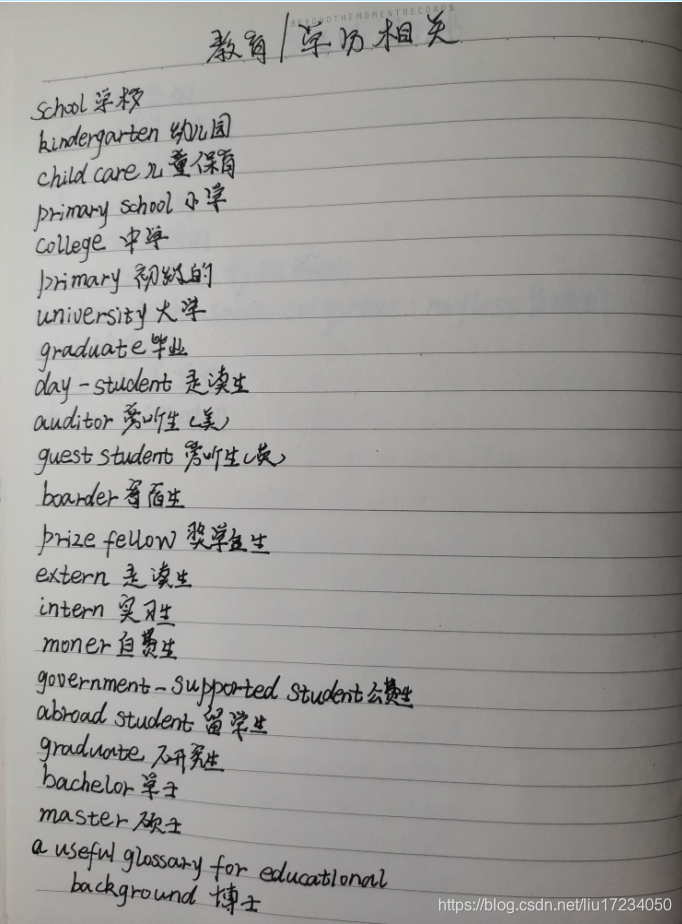 BEYONDTHEMOMENTRECORDS
教育/学历相关
school 学校
kindergarten 幼儿园
child care 儿童保育
primary school 小学
college 中学
primary 初级的
university 大学
graduate 毕业
day-student 走读生
auditor 旁听生(美)
guest student 旁听生(英)
boarder 寄宿生
prize fellow 奖学金生
extern 走读生
intern 实习生
moner 自费生
government-supported student 公费生
abroad student 留学生
graduate 研究生
bachelor 学士
master 硕士
a useful glossary for educational
background 博士
https://blog.csdn.net/liu17234050